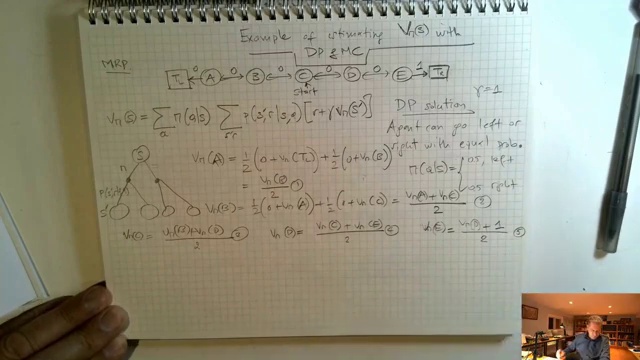 Example of estimating Vπ(s) with
DP & MC
MRP
T A 0 B 0 C 0 D 0 E 1 T
start
Vπ(s) = Σa π(a|s) Σs'r p(s',r|s,a) [r + γ Vπ(s')]
DP solution γ=1
Agent can go left or
right with equal prob.
π(a|s) = { 0.5, left
0.5 right
Vπ(A) = 1/2 (0 + Vπ(TL)) + 1/2 (0 + Vπ(B))
= Vπ(B)/2 ①
Vπ(B) = 1/2 (0 + Vπ(A)) + 1/2 (0 + Vπ(C)) =
Vπ(C) = Vπ(B) + Vπ(D) / 2
Vπ(D) = Vπ(C) + Vπ(E) / 2
Vπ(E) = Vπ(D) + 1 / 2 ⑤